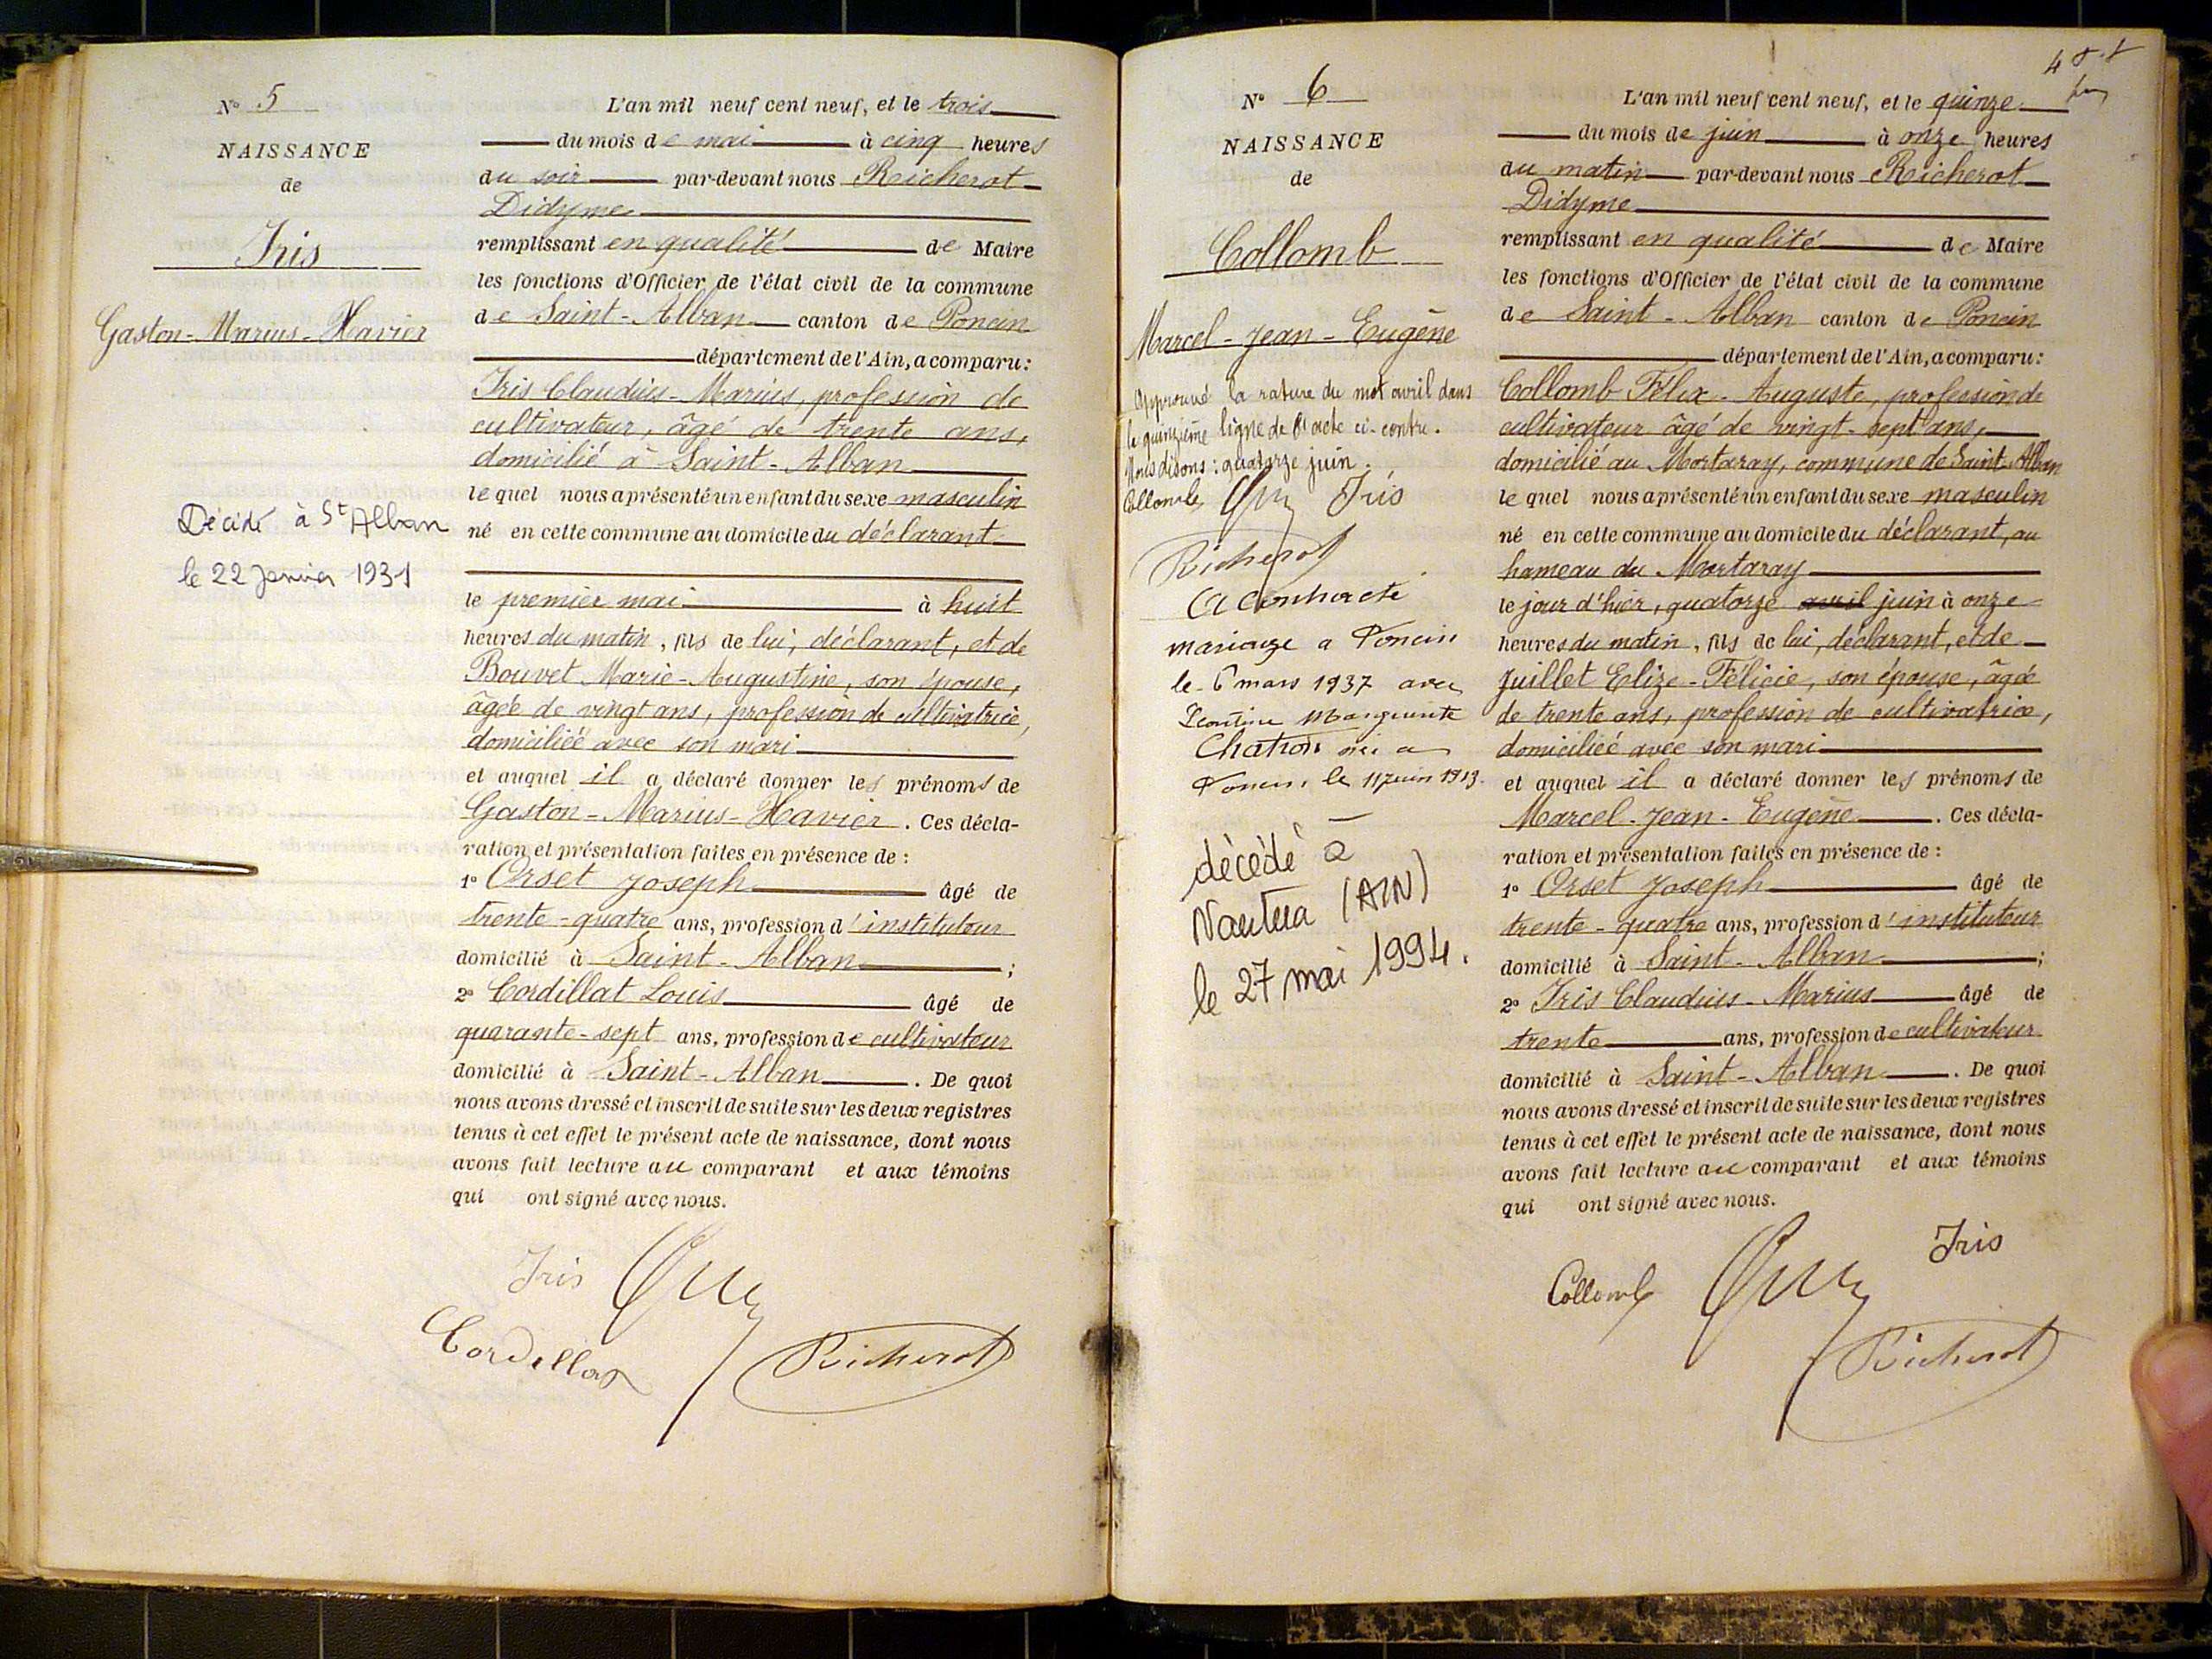 N° 5
NAISSANCE
de
Iris
Gaston-Marius-Xavier
Décédé à St Alban
le 22 Janvier 1931
L'an mil neuf cent neuf, et le trois
du mois de mai à cinq heures
du soir par-devant nous Richerot
Didyme
remplissant en qualité de Maire
les fonctions d'Officier de l'état civil de la commune
de Saint-Alban canton de Poncin
département de l'Ain, a comparu:
Iris Claudius-Marius, profession de
cultivateur, âgé de trente ans,
domicilié à Saint-Alban
lequel nous a présenté un enfant du sexe masculin
né en cette commune au domicile du déclarant
le premier mai à huit
heures du matin, fils de lui, déclarant, et de
Bouvet Marie-Augustine, son épouse,
âgée de vingt ans, profession de cultivatrice,
domiciliée avec son mari
et auquel il a déclaré donner les prénoms de
Gaston-Marius-Xavier. Ces décla-
ration et présentation faites en présence de :
1° Orset Joseph âgé de
trente-quatre ans, profession d'instituteur
domicilié à Saint-Alban ;
2° Cordillat Louis âgé de
quarante-sept ans, profession de cultivateur
domicilié à Saint-Alban. De quoi
nous avons dressé et inscrit de suite sur les deux registres
tenus à cet effet le présent acte de naissance, dont nous
avons fait lecture au comparant et aux témoins
qui ont signé avec nous.
Iris
Cordillat
Richerot
N° 6
NAISSANCE
de
Collomb
Marcel-Jean-Eugène
Approuvé la rature du mot avril dans
la quinzième ligne de l'acte ci-contre.
Nous disons : quatorze juin.
Collomb Iris
Richerot
A Contracté
mariage a Poncin
le 6 mars 1937 avec
Marguerite
Chatron née a
Poncin le 11 juin 1913.
décédé à
Nantua (AIN)
le 27 mai 1994.
L'an mil neuf cent neuf, et le quinze
du mois de juin à onze heures
du matin par-devant nous Richerot
Didyme
remplissant en qualité de Maire
les fonctions d'Officier de l'état civil de la commune
de Saint-Alban canton de Poncin
département de l'Ain, a comparu:
Collomb Félix-Auguste, profession de
cultivateur âgé de vingt-sept ans,
domicilié au Mortaray, commune de Saint-Alban
lequel nous a présenté un enfant du sexe masculin
né en cette commune au domicile du déclarant, au
hameau du Mortaray
le jour d'hier, quatorze avril juin à onze
heures du matin, fils de lui, déclarant, et de
Juillet Elize-Félicie, son épouse, âgée
de trente ans, profession de cultivatrice,
domiciliée avec son mari
et auquel il a déclaré donner les prénoms de
Marcel-Jean-Eugène. Ces décla-
ration et présentation faites en présence de :
1° Orset Joseph âgé de
trente-quatre ans, profession d'instituteur
domicilié à Saint-Alban ;
2° Iris Claudius-Marius âgé de
trente ans, profession de cultivateur
domicilié à Saint-Alban. De quoi
nous avons dressé et inscrit de suite sur les deux registres
tenus à cet effet le présent acte de naissance, dont nous
avons fait lecture au comparant et aux témoins
qui ont signé avec nous.
Iris
Collomb
Richerot